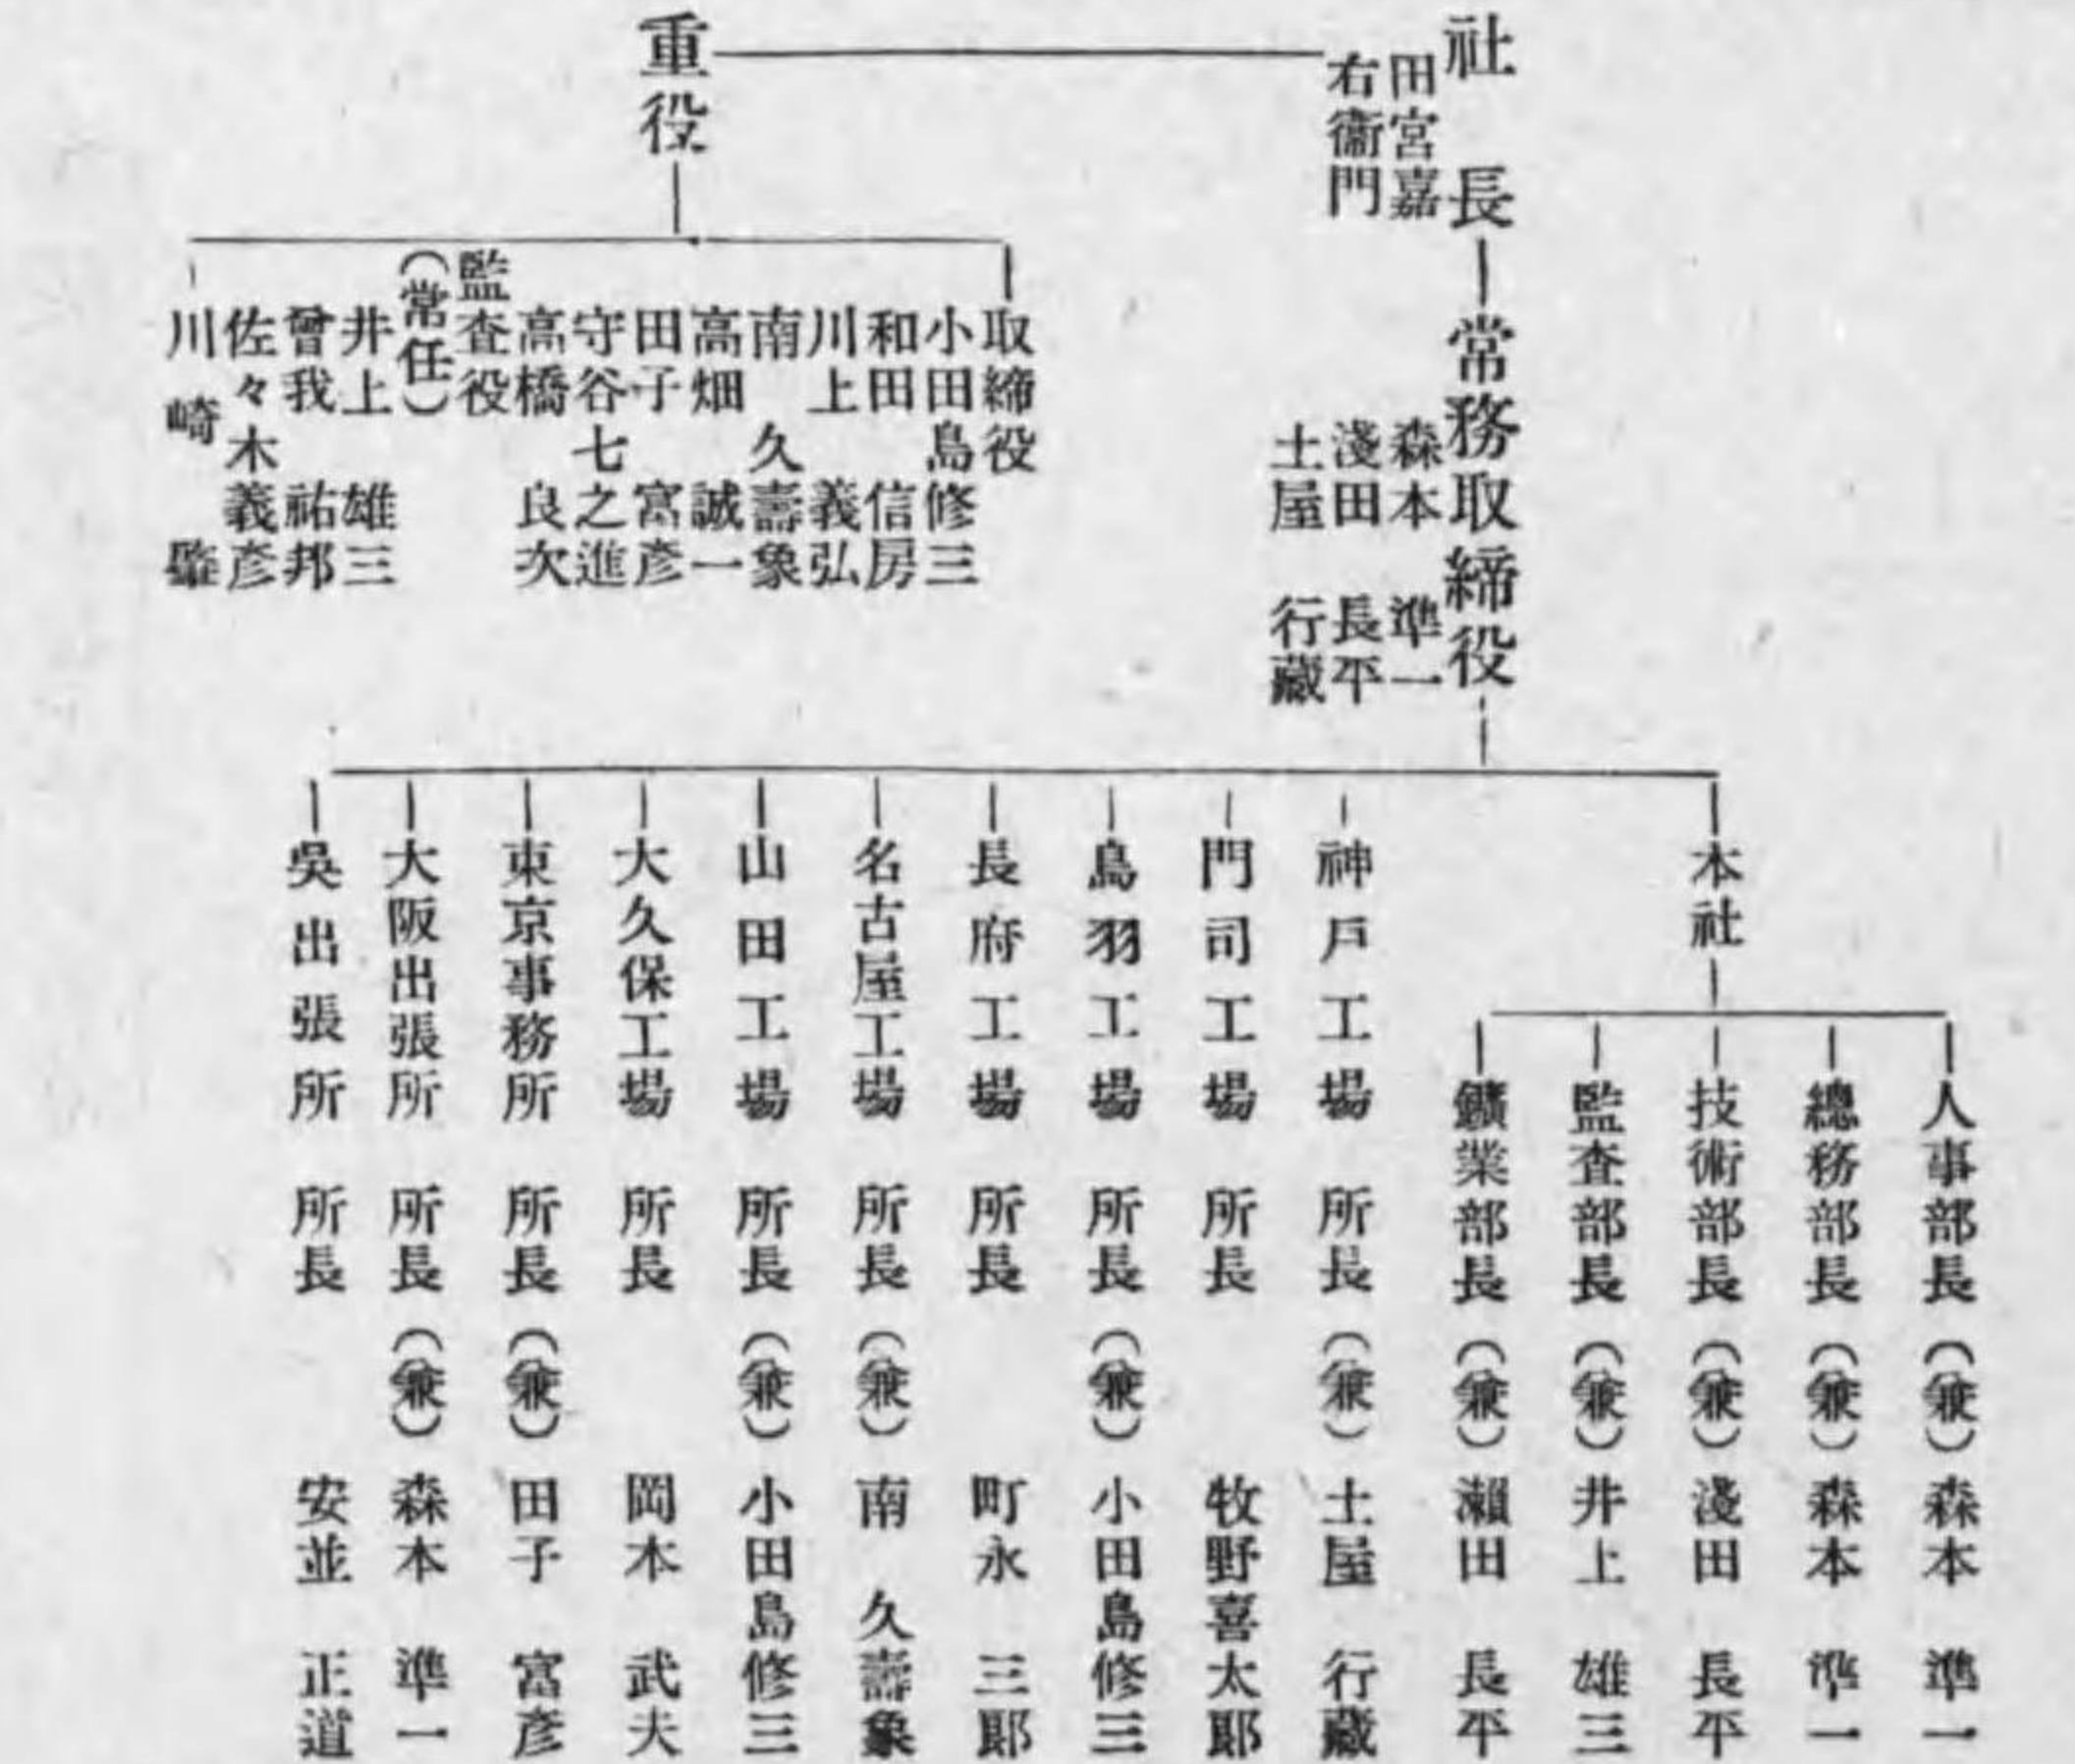 社長
田宮嘉
右衞門
常務取締役
森本準一
淺田長平
土屋行藏
重役
取締役
小田島修三
和田信房
川上義弘
南久壽象
高畑誠一
田子富彦
守谷七之進
高橋良次
監査役
(常任)
井上雄三
曾我祐邦
佐々木義彦
川崎
本社
人事部長(兼)森本準一
總務部長(兼)森本準一
技術部長(兼)淺田長平
監査部長(兼)井上雄三
鑛業部長(兼)瀬田長平
神戸工場 所長(兼)土屋行藏
門司工場 所長 牧野喜太郎
鳥羽工場 所長(兼)小田島修三
長府工場 所長 町永三郎
名古屋工場 所長(兼)南久壽象
山田工場 所長(兼)小田島修三
大久保工場 所長 岡本武夫
東京事務所 所長(兼)田子富彦
大阪出張所 所長(兼)森本準一
吳出張所 所長 安並正道